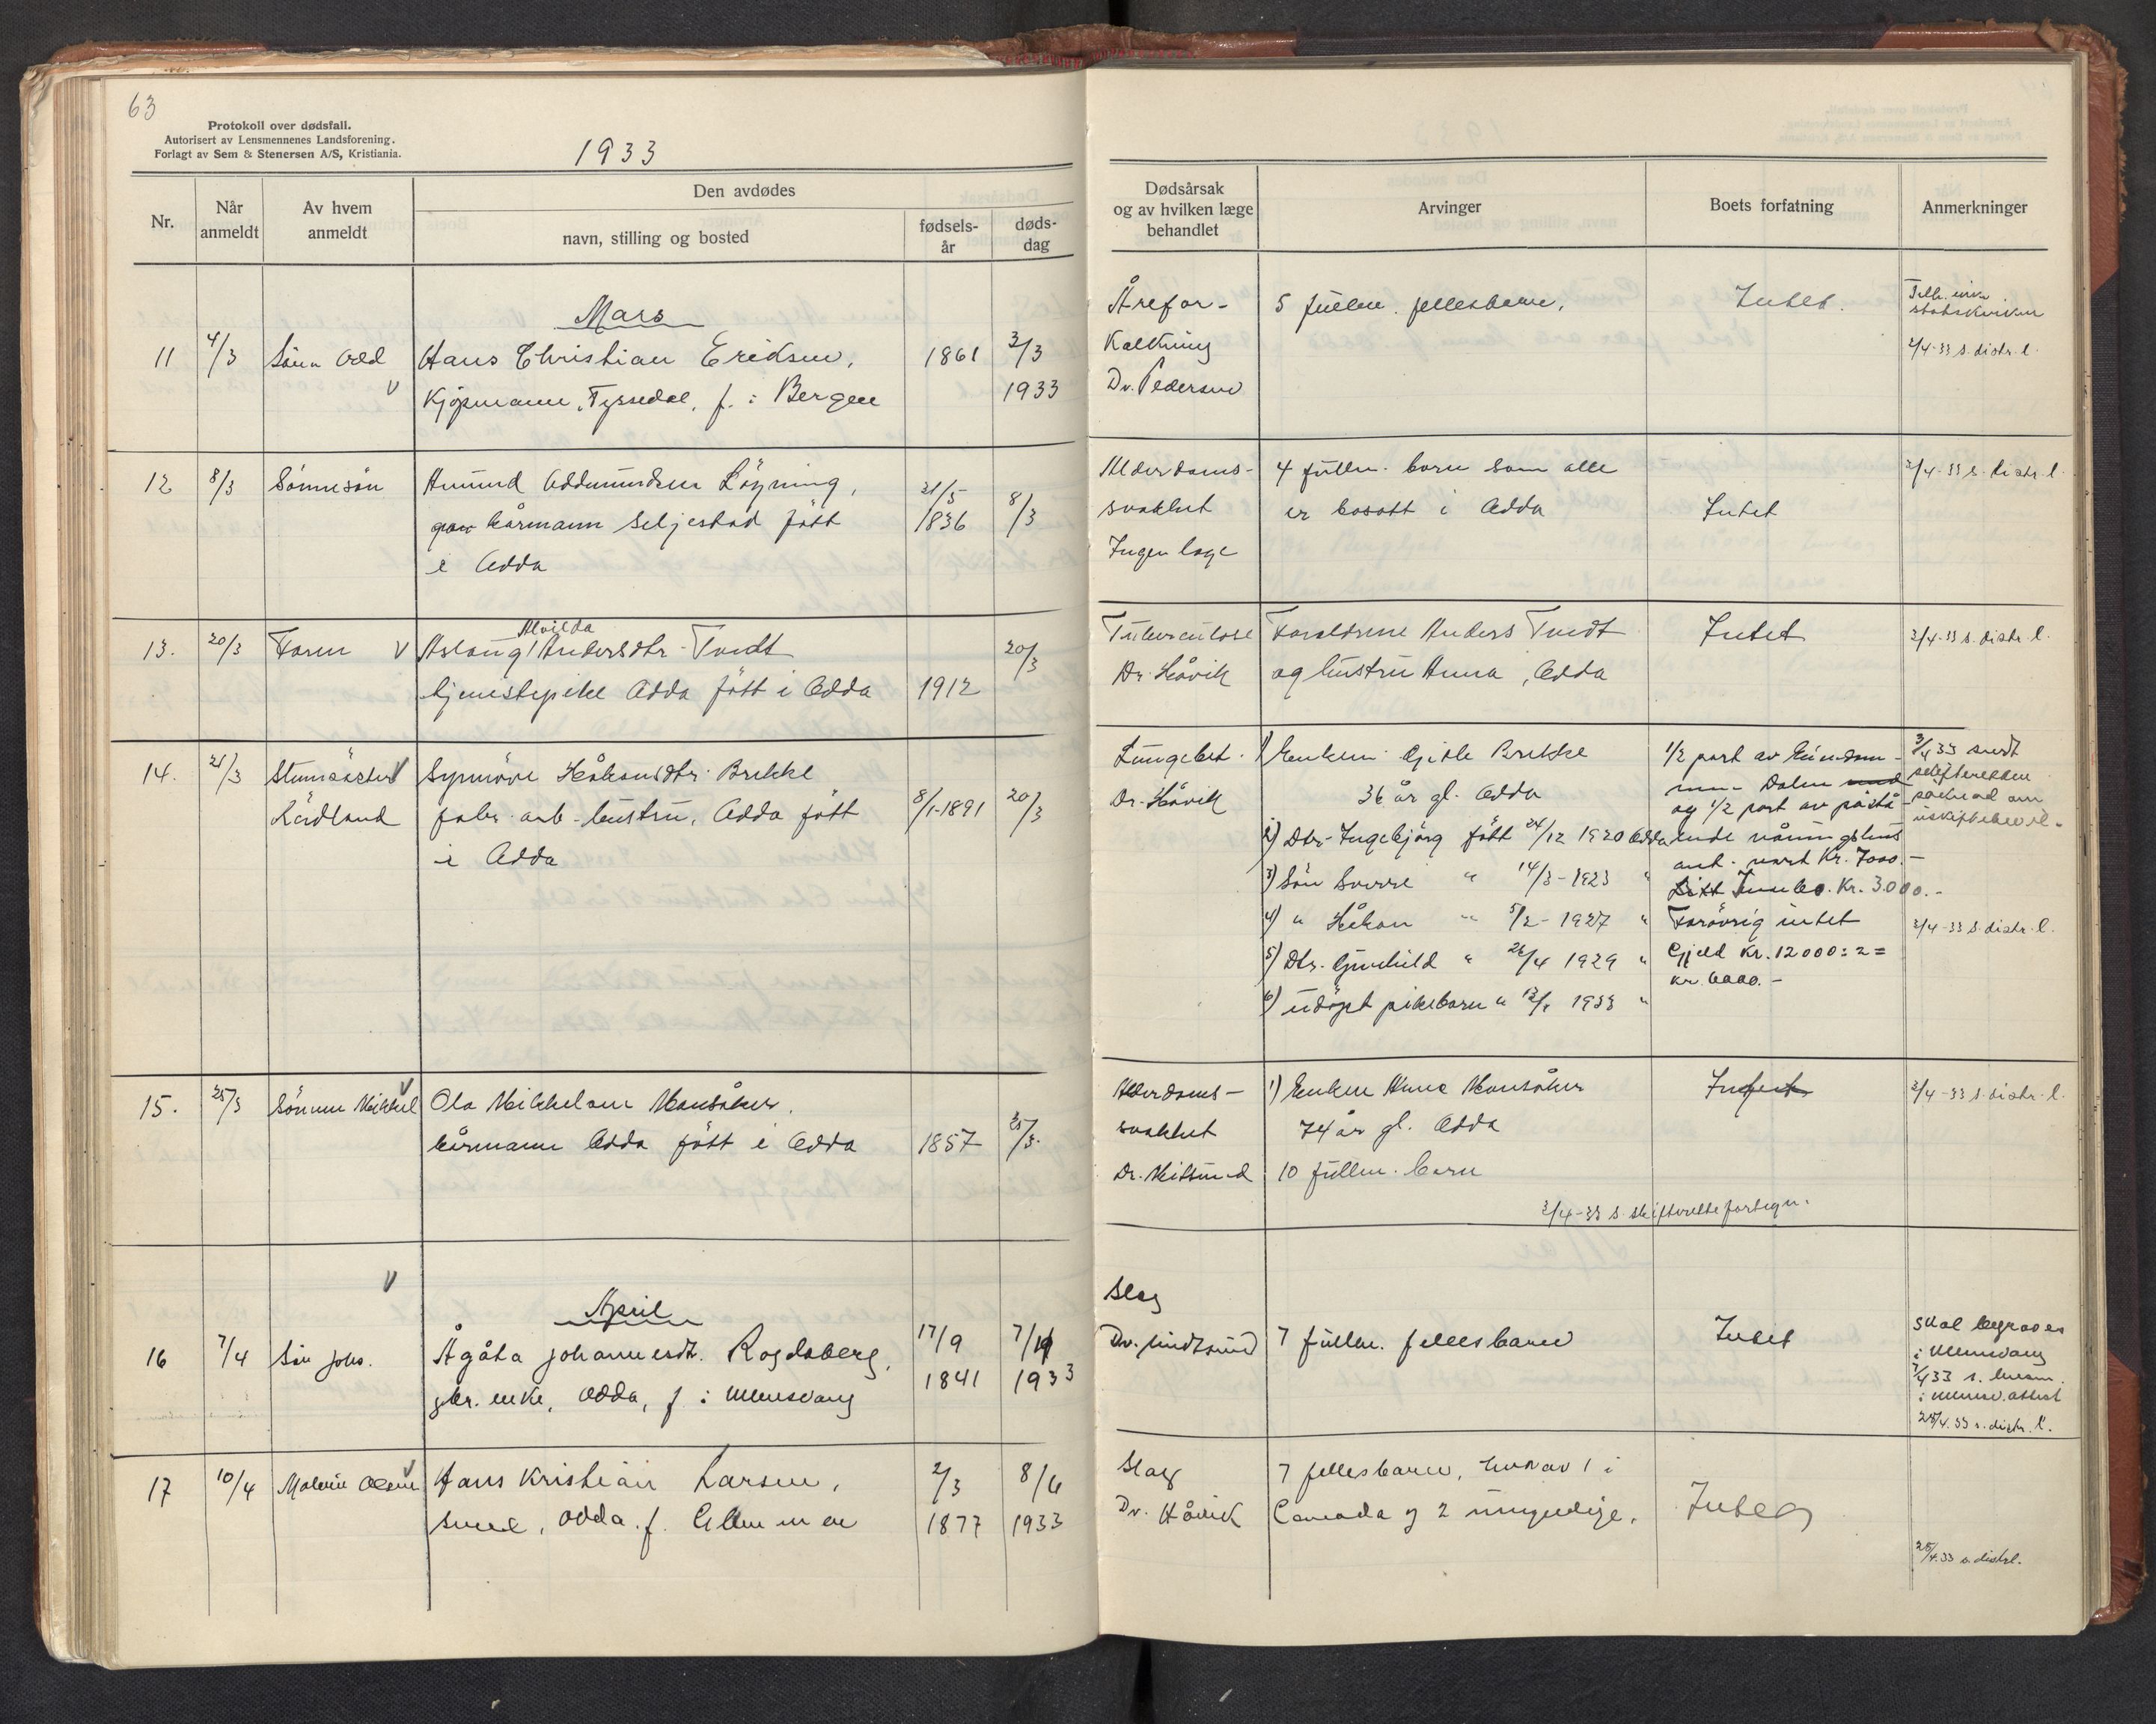 63
Protokoll over dødsfall.
Autorisert av Lensmennenes Landsforening.
Forlagt av Sem & Stenersen A/S, Kristiania.
1933
Nr.
Når anmeldt
Av hvem anmeldt
Den avdødes
navn, stilling og bosted
fødsels-år
døds-dag
Dødsårsak og av hvilken læge behandlet
Arvinger
Boets forfatning
Anmerkninger
Mars
11 4/3 Sönn Odd Hans Christian Eriksen, 1861 3/3
Kjøpmann, Tyssedal, f. i Bergen 1933
Årefor-
kalkning
Dr. Pedersen
5 fullm. fellesbarn.
Intet.
2/4-33 s. distr. l.
12 8/3 Sönnesön Amund Oddmundsen Löyning, 21/5 8/3
kårmann Seljestad fött 1836
i Odda
Alderdoms-
svakhet
Ingen læge
4 fullm. barn som alle
er bosatt i Odda
Intet
2/4-33 s. distr. l.
13. 20/3 Faren V Aslaug Alvilda Andersdtr. Tvedt 20/3
tjenestepike Odda fött i Odda 1912
Tuberculose
Dr. Håvik
Foreldrene Anders Tvedt
og hustru Anna, Odda
Intet
2/4-33 s. distr. l.
14. 21/3 V Synnöve Håkonsdtr. Brekke
fabr. arb. hustru, Odda fött 8/1-1891 20/3
i Odda
Lungebet.
Dr. Håvik
1) Enkem. Gjitle Brekke
36 år gl. Odda
2) Dtr. Ingebjörg fött 24/12 1920 Odda
3) Sön Sverre " 14/3-1923 "
4) " Håkon " 5/2-1927 "
5) Dtr. Gunhild " 26/4 1929 "
6) udöpt pikebarn " 1933 "
1/2 part av Eiendom-
men Dalen
og 1/2 part av påstå-
ende våningshus
ant. verd Kr. 7000.-
Innbo. Kr. 3000.-
Forövrig intet
Gjeld Kr. 12000:2=
kr. 6000.-
3/4 33 sendt
skifteretten
söknad om
2/4-33 s. distr. l.
15. 25/3 Sönnen Mikkel V Ola Mikkelsen Mansåker.
kårmann Odda fött i Odda 1857 25/3.
Alderdoms-
svakhet
1) Enken Anna Mansåker
74 år gl. Odda
10 fullm. barn
Intet
2/4-33 s. distr. l.
2/4-33 s. skifterettefortegn.
V
April
16 7/4 Sön Johs. Ågåta Johannesdt. Ragdeberg, 17/9 7/4
gbr. enke, Odda, f. i Ullensvang 1841 1933
Slag
7 fullm. fellesbarn
Intet
Skal begraves
i Ullensvang
25/4.33 s. distr. l.
17 10/4 V Hans Kristian Larsen, 2/3 8/4
smed, Odda. f. 1877 1933
Slag
Dr. Håvik
7 fellesbarn, hvorav 1 i
Canada og 2 umyndige.
Intet
25/4.33 s. distr. l.